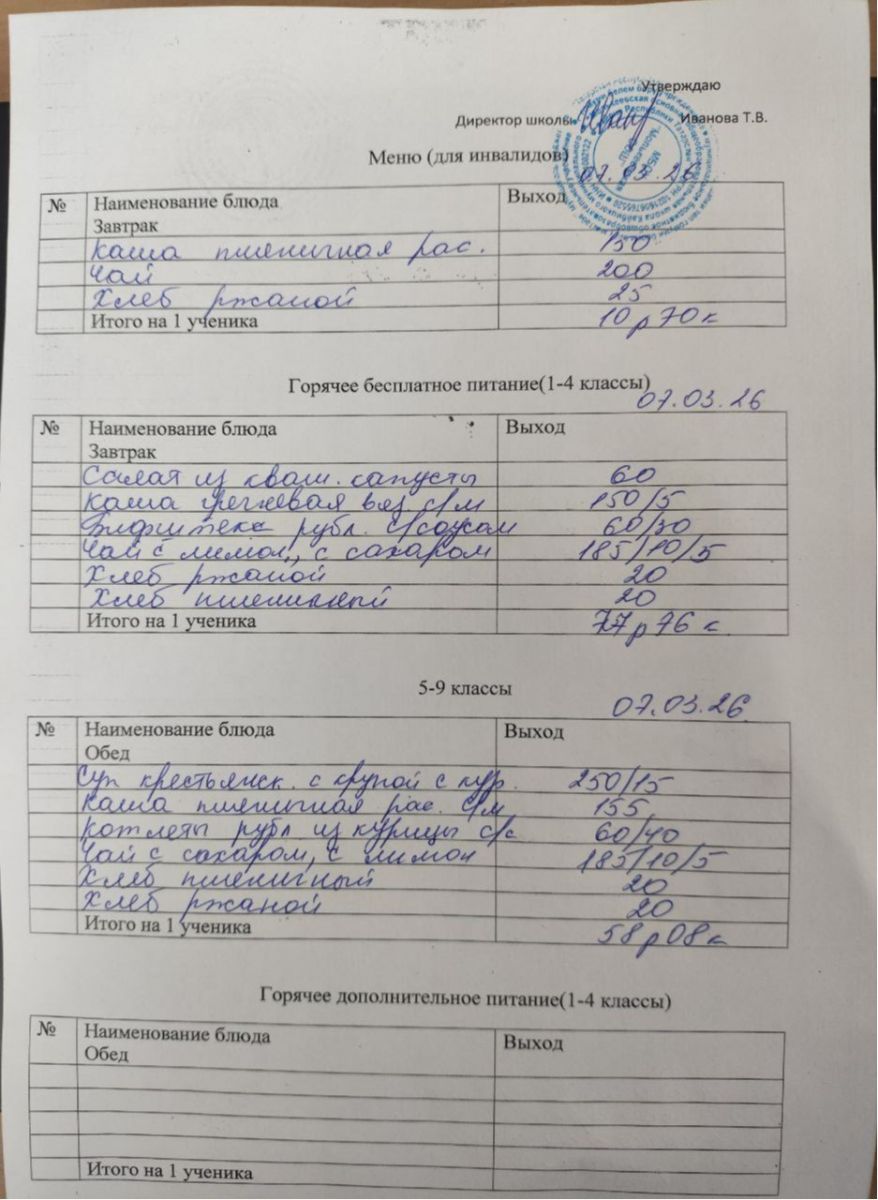 Утверждаю
Директор школы Иванова Т.В.
Меню (для инвалидов)
07.03.26
№ Наименование блюда Выход
Завтрак
Каша пшеничная рас. 150
Чай 200
Хлеб ржаной 25
Итого на 1 ученика 10р 70к
Горячее бесплатное питание(1-4 классы)
07.03.26
№ Наименование блюда Выход
Завтрак
Салат из кваш. капусты 60
Каша гречневая вяз. с/м 150/5
Бифштекс рубл. с/соусом 60/30
Чай с лимон., с сахаром 185/10/5
Хлеб ржаной 20
Хлеб пшеничный 20
Итого на 1 ученика 77р 76к
5-9 классы
07.03.26
№ Наименование блюда Выход
Обед
Суп крестьянск. с крупой с кур. 250/15
Каша пшеничная рас. с/м 155
Котлеты рубл из курицы с/с 60/40
Чай с сахаром, с лимон 185/10/5
Хлеб пшеничный 20
Хлеб ржаной 20
Итого на 1 ученика 58р 08к
Горячее дополнительное питание(1-4 классы)
№ Наименование блюда Выход
Обед
Итого на 1 ученика